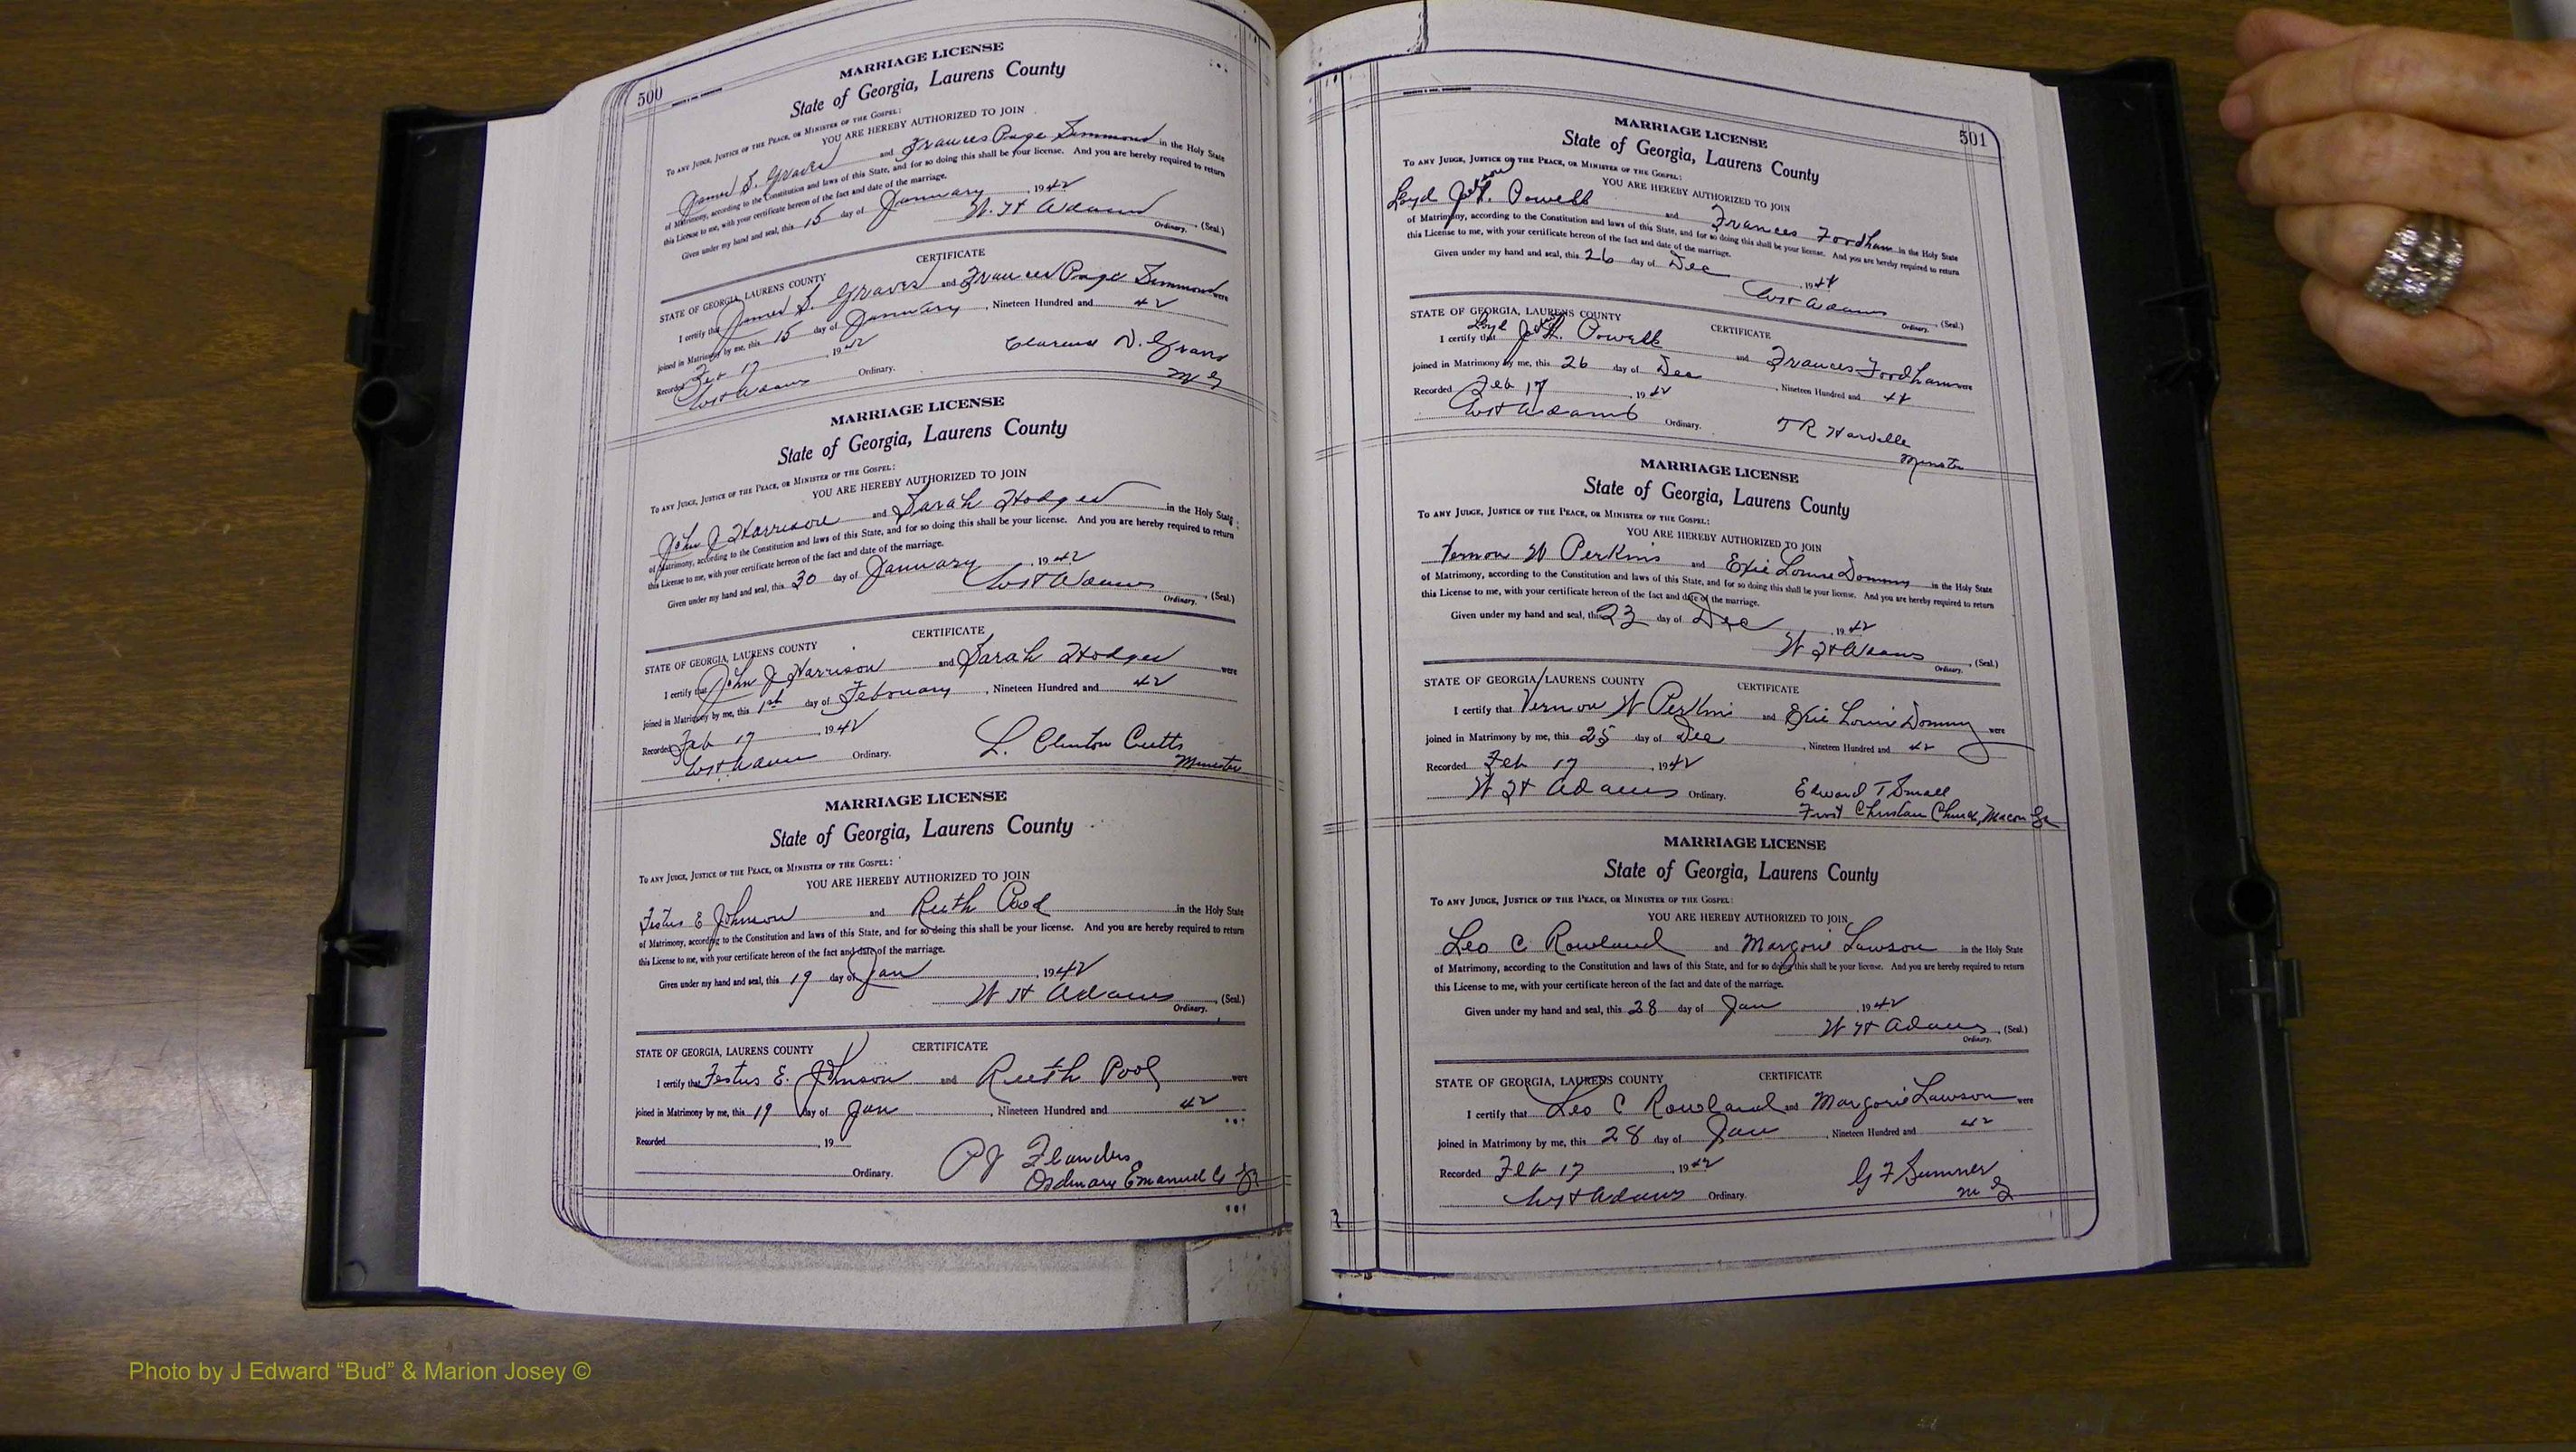 500
MARRIAGE LICENSE
State of Georgia, Laurens County
TO ANY JUDGE, JUSTICE OF THE PEACE, OR MINISTER OF THE GOSPEL:
YOU ARE HEREBY AUTHORIZED TO JOIN
James S. Graves and Frances Page Simmond in the Holy State
of Matrimony, according to the Constitution and laws of this State, and for so doing this shall be your license. And you are hereby required to return
this License to me, with your certificate hereon of the fact and date of the marriage.
Given under my hand and seal, this 15 day of January, 1942
W. H Adams (Seal.)
Ordinary.
CERTIFICATE
STATE OF GEORGIA, LAURENS COUNTY
I certify that James S. Graves and Frances Page Simmond were
joined in Matrimony by me, this 15 day of January, Nineteen Hundred and 42
Recorded Feb 17, 1942
Clarence D. Graves
WH Adams Ordinary.
M G
MARRIAGE LICENSE
State of Georgia, Laurens County
TO ANY JUDGE, JUSTICE OF THE PEACE, OR MINISTER OF THE GOSPEL:
YOU ARE HEREBY AUTHORIZED TO JOIN
John J Harrison and Sarah Hodges in the Holy State
of Matrimony, according to the Constitution and laws of this State, and for so doing this shall be your license. And you are hereby required to return
this License to me, with your certificate hereon of the fact and date of the marriage.
Given under my hand and seal, this 30 day of January, 1942
WH Adams (Seal.)
Ordinary.
CERTIFICATE
STATE OF GEORGIA, LAURENS COUNTY
I certify that John J Harrison and Sarah Hodges were
joined in Matrimony by me, this 1st day of February, Nineteen Hundred and 42
Recorded Feb 17, 1942
L. Clinton Cutts
WH Adams Ordinary.
Minister
MARRIAGE LICENSE
State of Georgia, Laurens County
TO ANY JUDGE, JUSTICE OF THE PEACE, OR MINISTER OF THE GOSPEL:
YOU ARE HEREBY AUTHORIZED TO JOIN
Festus E Johnson and Ruth Pool in the Holy State
of Matrimony, according to the Constitution and laws of this State, and for so doing this shall be your license. And you are hereby required to return
this License to me, with your certificate hereon of the fact and date of the marriage.
Given under my hand and seal, this 19 day of Jan, 1942
W H Adams (Seal.)
Ordinary.
STATE OF GEORGIA, LAURENS COUNTY CERTIFICATE
I certify that Festus E. Johnson and Ruth Pool were
joined in Matrimony by me, this 19 day of Jan, Nineteen Hundred and 42
Recorded, 19
P J Flanders
Ordinary.
Ordinary Emanuel Co Ga
501
MARRIAGE LICENSE
State of Georgia, Laurens County
TO ANY JUDGE, JUSTICE OF THE PEACE, OR MINISTER OF THE GOSPEL:
YOU ARE HEREBY AUTHORIZED TO JOIN
Loyd Powell and Frances Fordham in the Holy State
of Matrimony, according to the Constitution and laws of this State, and for so doing this shall be your license. And you are hereby required to return
this License to me, with your certificate hereon of the fact and date of the marriage.
Given under my hand and seal, this 26 day of Dec, 19
WH Adams (Seal.)
Ordinary.
STATE OF GEORGIA, LAURENS COUNTY CERTIFICATE
I certify that Powell and Frances Fordham were
joined in Matrimony by me, this 26 day of Dec, Nineteen Hundred and
Recorded Feb 17, 1942
WH Adams Ordinary.
T R
Minster
MARRIAGE LICENSE
State of Georgia, Laurens County
TO ANY JUDGE, JUSTICE OF THE PEACE, OR MINISTER OF THE GOSPEL:
YOU ARE HEREBY AUTHORIZED TO JOIN
Vernon W Perkins and Exie Louise Dominy in the Holy State
of Matrimony, according to the Constitution and laws of this State, and for so doing this shall be your license. And you are hereby required to return
this License to me, with your certificate hereon of the fact and date of the marriage.
Given under my hand and seal, this 23 day of Dec, 1942
W H Adams (Seal.)
Ordinary.
STATE OF GEORGIA, LAURENS COUNTY CERTIFICATE
I certify that Vernon W Perkins and Exie Louise Dominy were
joined in Matrimony by me, this 25 day of Dec, Nineteen Hundred and 42
Recorded Feb 17, 1942
W H Adams Ordinary.
Edward T Small
First Christian Church, Macon Ga
MARRIAGE LICENSE
State of Georgia, Laurens County
TO ANY JUDGE, JUSTICE OF THE PEACE, OR MINISTER OF THE GOSPEL:
YOU ARE HEREBY AUTHORIZED TO JOIN
Leo C Rowland and Margorie Lawson in the Holy State
of Matrimony, according to the Constitution and laws of this State, and for so doing this shall be your license. And you are hereby required to return
this License to me, with your certificate hereon of the fact and date of the marriage.
Given under my hand and seal, this 28 day of Jan, 1942
W H Adams (Seal.)
Ordinary.
STATE OF GEORGIA, LAURENS COUNTY CERTIFICATE
I certify that Leo C Rowland and Margorie Lawson were
joined in Matrimony by me, this 28 day of Jan, Nineteen Hundred and 42
Recorded Feb 17, 1942
G F Sumner
WH Adams Ordinary.
M G
Photo by J Edward “Bud” & Marion Josey ©